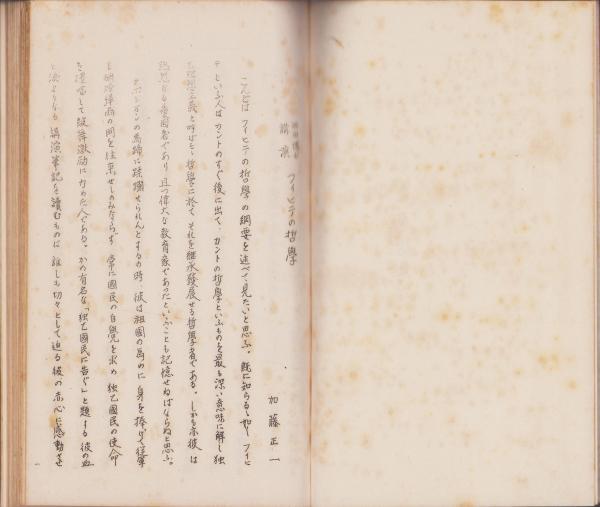 講演 フィヒテの哲學
加藤正一
こんどは フィヒテの哲學の綱要を述べて見たいと思ふ。既に知らるゝ如くフィヒ
テといふ人はカントのすぐ後に出て、カントの哲學といふものを最も深い意味に解し独
乙理想主義と呼ばるゝ哲學に於て それを継承發展せる哲學者である。しかも亦彼は
熱烈なる愛國者であり、且つ偉大な教育家であったといふことも記憶せねばならぬと思ふ。
ナポレオンの馬蹄に蹂躙せられんとするの時、彼は祖國の為めに身を捧げて従軍
し砲煙弾雨の間を往来せしのみならず、常に國民の自覺を求め 独乙國民の使命
を して 激励につとめた人である。かの有名な「独乙國民に告ぐ」と題する彼の血
と涙より成る講演筆記を讀むものは、誰しも切々として迫る彼の赤心に感動させ